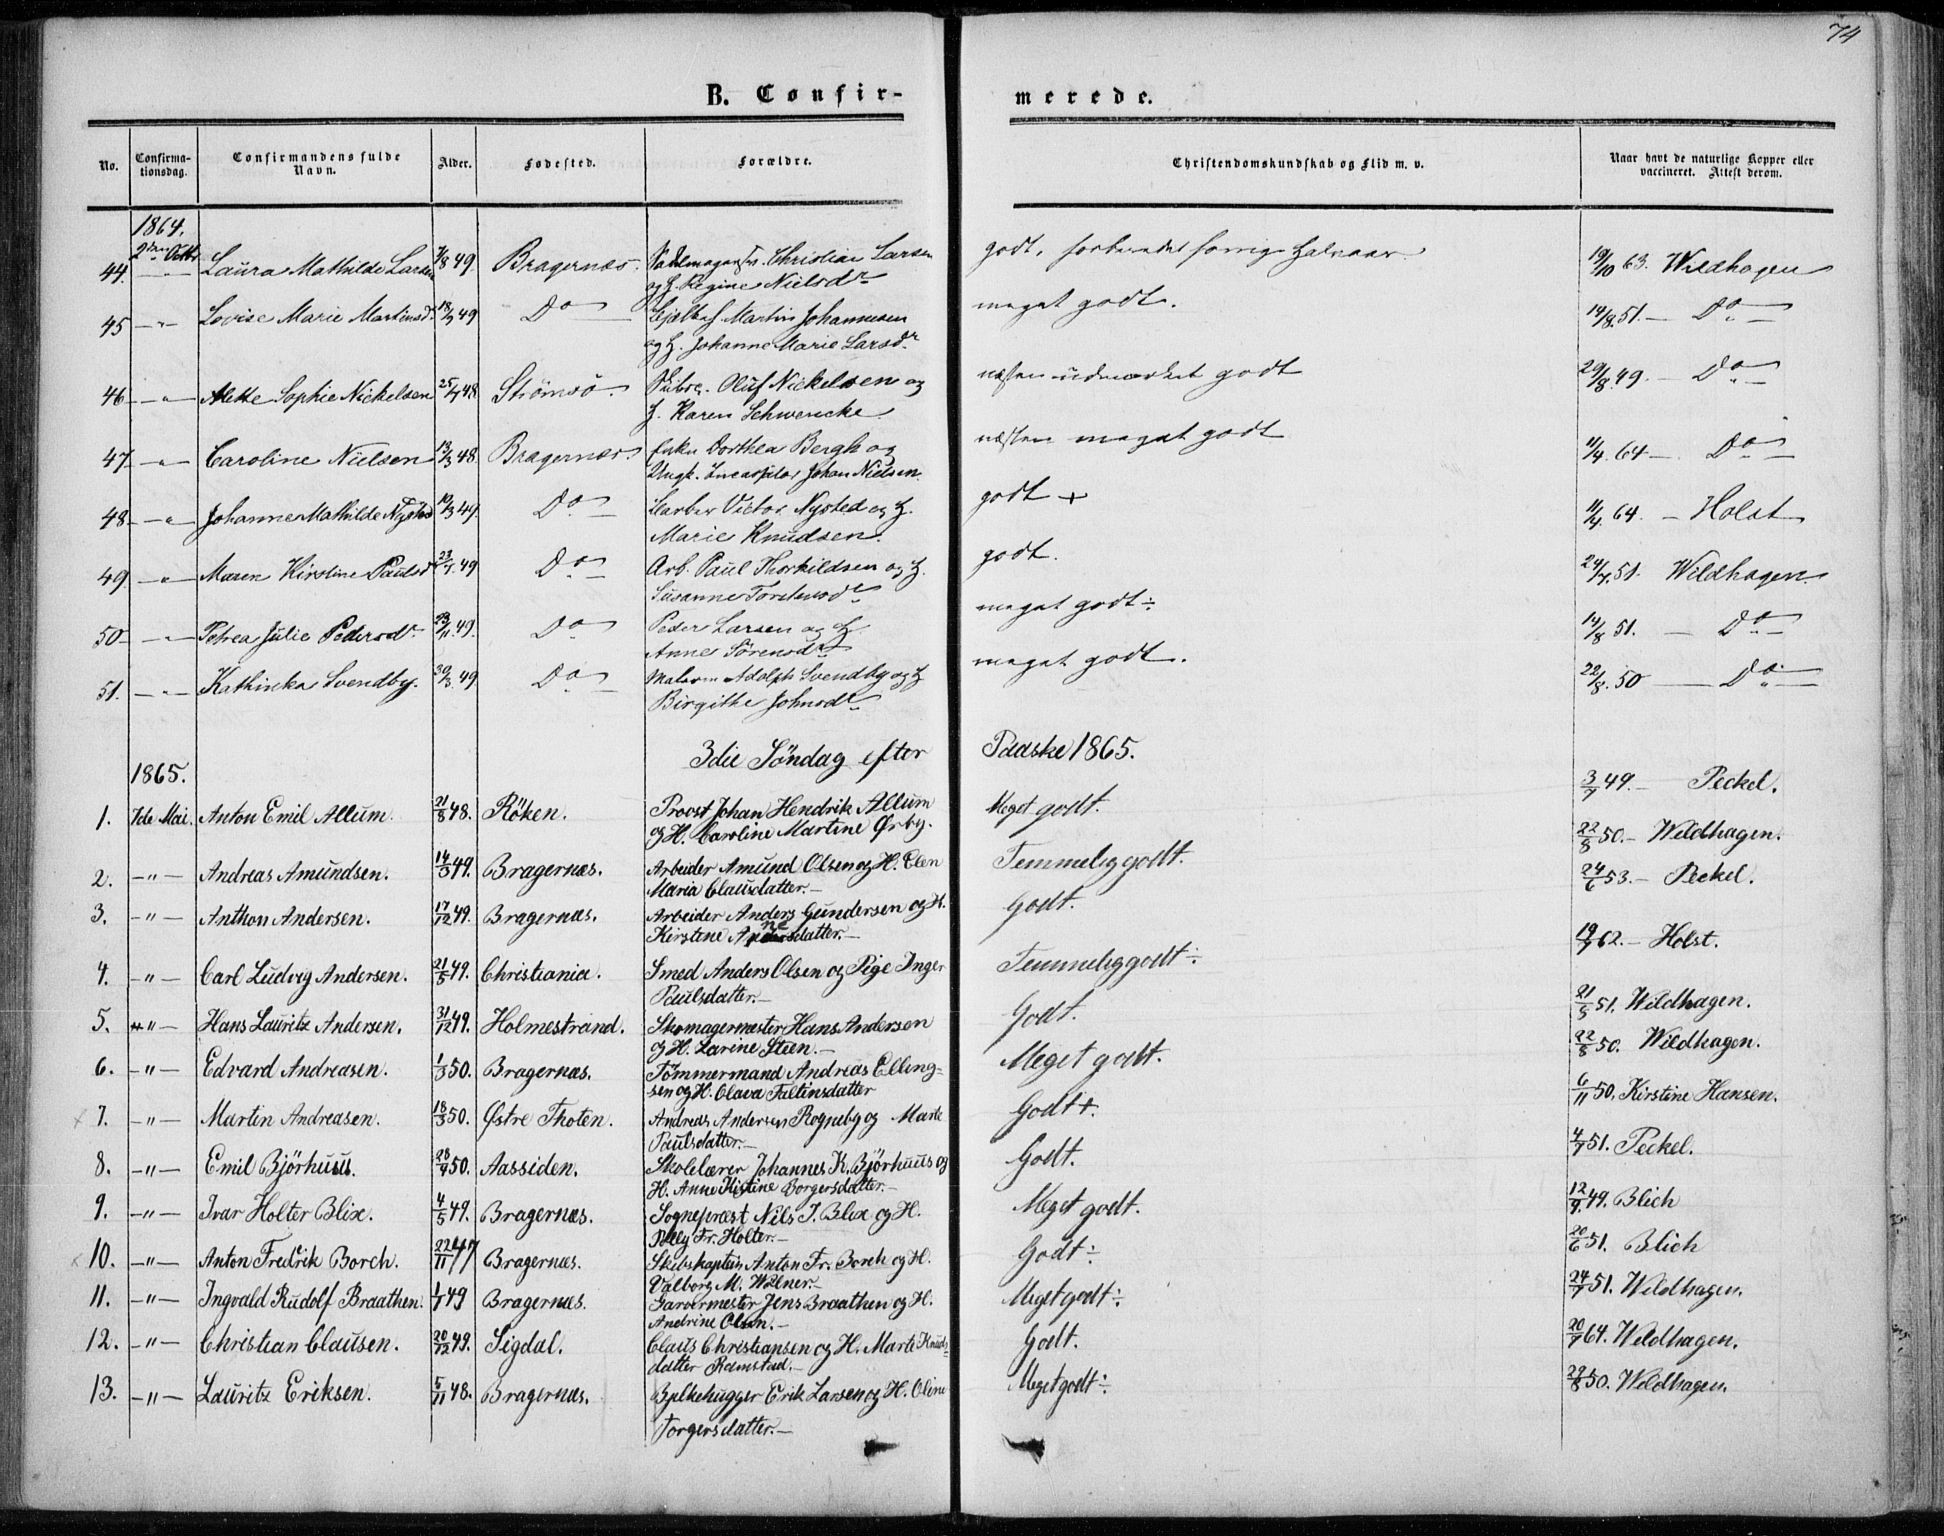 74
B. Confir-
merede.
No.
Confirma-
tionsdag.
Confirmandens fulde
Navn.
Alder.
Fødested.
Forældre.
Christendomskundskab og Flid m. v.
Naar havt de naturlige Kopper eller
vaccineret. Attest derom.
1864.
44. Laura Mathilde Larsen 49. Bragernæs. Christian Larsen godt, forrige Halvaar 19/10 63. Wildhagen
og H. Regine Nielsdr
45 —"— Lovise Marie Martinsd. 49 Do Martin Johannesen meget godt. 14/8.51. — Do
og H. Johanne Marie Larsdr
46 —"— Alette Sophie Nickelsen 48 Strömsö Oluf Nickelsen og næsten udmærket godt 29/8.49. — Do
H. Karen Schwencke
47 —"— Caroline Nielsen 13/3 48. Bragernæs. Enke Dorthea Bergh og næsten meget godt 11/4.64 — Do
Ungk. Johan Nielsen.
48. —"— Johanne Mathilde Nysted 10/3 49. Do Victor Nysted og H. godt + 11/4.64. — Holst
Marie Knudsen.
49 —"— Maren Kirstine Paulsd 49 Do Arb. Paul Thorkildsen og H. godt. 24/7.51. Wildhagen
Susanne
50 —"— Petrea Julie Pedersdr. 23/11.49. Do Peder Larsen og H. meget godt ÷ 14/8 51. — Do
Anne Sörensdr
51. —"— Kathinka Svendby. 30/3.49 Do Malerm Adolph Svendby og H meget godt. 22/8.50 — Do
Birgithe Johnsdr
3die Söndag efter Paaske 1865.
1865.
1. 7de Mai. Anton Emil Allum. 21/8 48. Röken. Provst Johan Hendrik Allum Meget godt. 3/7 49. — Peckel.
og H. Caroline Martine Ørby.
2. —"— Andreas Amundsen. 14/3 49. Bragernæs. Arbeider Amund Olsen og H. Elen Temmelig godt. 22/8 50. — Wildhagen.
Maria Clausdatter. —
3. —"— Anthon Andersen. 17/12 49. Bragernæs. Arbeider Anders Gundersen og H. Godt. 24/6 53. — Peckel.
Kirstine
4. —"— Carl Ludvig Andersen. 21/5 49. Christiania. Smed Anders Olsen og Pige Inger Temmelig godt ÷ 19/7 62. — Holst.
Paulsdatter. —
5. —"— Hans Lauritz Andersen. 31/12 49. Holmestrand. Skomagermester Hans Andersen Godt. 21/5 51. Wildhagen.
og H. Larine Steen. —
6. —"— Edvard Andreasen. 1/3 50. Bragernæs. Tömmermand Andreas Elling- Meget godt. 22/8 50. Wildhagen.
sen og H. Olava Faltinsdatter
7. —"— Martin Andreasen. 18/3 50. Østre Thoten. Andreas Andersen Rogneby og Marte Godt +. 6/11 50. Kirstine Hansen.
Paulsdatter. —
8. —"— Emil Björhuus. 50. Aassiden. Skolelærer Johannes K. Björhuus og Godt. 4/7 51. Peckel.
H. Anne Kistine Borgersdatter. —
9. —"— Ivar Holter Blix. 4/5 49. Bragernæs. Sognepræst Nils J. Blix og H. Meget godt. 12/9 49. Blich
Fr. Holter. —
10. —"— Anton Fredrik Borch. 22/11 47 Bragernæs. Skibskaptein Anton Fr. Borch og H. Godt ÷ 20/6 51. Blich
Valborg M. Wilner. —
11. —"— Ingvald Rudolf Braathen. 1/7 49 Bragernæs. Garvermester Jens Braathen og H. Meget godt ÷. 24/7 51. Wildhagen.
Andrine Olsen. —
12. —"— Christian Clausen. 20/12 49. Sigdal. Claus Christiansen og H. Marte Knuds- Godt. 20/7 64. Wildhagen.
datter Ramstad. —
13. —"— Lauritz Eriksen. 5/11 48. Bragernæs. Bjelkehugger Erik Larsen og H. Oline Meget godt ÷. 50. Wildhagen.
Torgersdatter. —